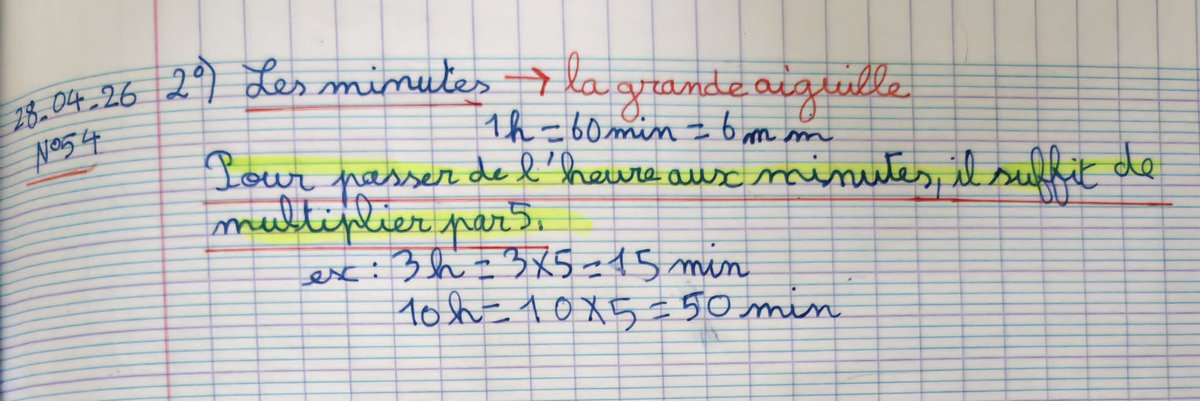 28-04-26
N°54
2°) Les minutes → la grande aiguille
1h = 60 min = 6 m m
Pour passer de l'heure aux minutes, il suffit de
multiplier par 5.
ex : 3h = 3x5 = 15 min
10h = 10x5 = 50 min